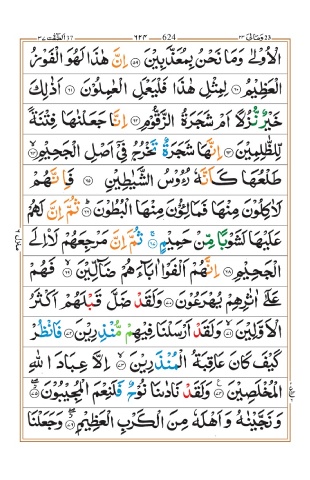 والصّٰفّٰت ٣٧ ٦٢٣ 624 ومالی ٢٣
الْاُوْلٰى وَمَا نَحْنُ بِمُعَذَّبِيْنَ ﴿٥٩﴾ اِنَّ هٰذَا لَهُوَ الْفَوْزُ
الْعَظِيْمُ ﴿٦٠﴾ لِمِثْلِ هٰذَا فَلْيَعْمَلِ الْعٰمِلُوْنَ ﴿٦١﴾ اَذٰلِكَ
خَيْرٌ نُّزُلًا اَمْ شَجَرَةُ الزَّقُّوْمِ ﴿٦٢﴾ اِنَّا جَعَلْنٰهَا فِتْنَةً
لِّلظّٰلِمِيْنَ ﴿٦٣﴾ اِنَّهَا شَجَرَةٌ تَخْرُجُ فِيْۤ اَصْلِ الْجَحِيْمِ ﴿٦٤﴾
طَلْعُهَا كَاَنَّهٗ رُءُوْسُ الشَّيٰطِيْنِ ﴿٦٥﴾ فَاِنَّهُمْ
لَاٰكِلُوْنَ مِنْهَا فَمَالِـُٔوْنَ مِنْهَا الْبُطُوْنَ ﴿٦٦﴾ ثُمَّ اِنَّ لَهُمْ
عَلَيْهَا لَشَوْبًا مِّنْ حَمِيْمٍ ﴿٦٧﴾ ثُمَّ اِنَّ مَرْجِعَهُمْ لَاۡاِلَى
الْجَحِيْمِ ﴿٦٨﴾ اِنَّهُمْ اَلْفَوْا اٰبَآءَهُمْ ضَآلِّيْنَ ﴿٦٩﴾ فَهُمْ
عَلٰٓى اٰثٰرِهِمْ يُهْرَعُوْنَ ﴿٧٠﴾ وَلَقَدْ ضَلَّ قَبْلَهُمْ اَكْثَرُ
الْاَوَّلِيْنَ ﴿٧١﴾ وَلَقَدْ اَرْسَلْنَا فِيْهِمْ مُّنْذِرِيْنَ ﴿٧٢﴾ فَانْظُرْ
كَيْفَ كَانَ عَاقِبَةُ الْمُنْذَرِيْنَ ﴿٧٣﴾ اِلَّا عِبَادَ اللّٰهِ
الْمُخْلَصِيْنَ ﴿٧٤﴾ وَلَقَدْ نَادٰىنَا نُوْحٌ فَلَنِعْمَ الْمُجِيْبُوْنَ ﴿٧٥﴾
وَنَجَّيْنٰهُ وَاَهْلَهٗ مِنَ الْكَرْبِ الْعَظِيْمِ ﴿٧٦﴾ وَجَعَلْنَا